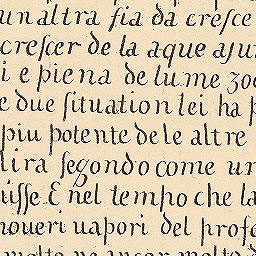 un altra ſia da creſce
creſcer de la aque aſun
i e piena de lu me zo
e due ſituation lei ha p
piu potente de le altre
lira ſegondo come un
uiſſe. E nel tempo che la
noueri uapori del profo
molto